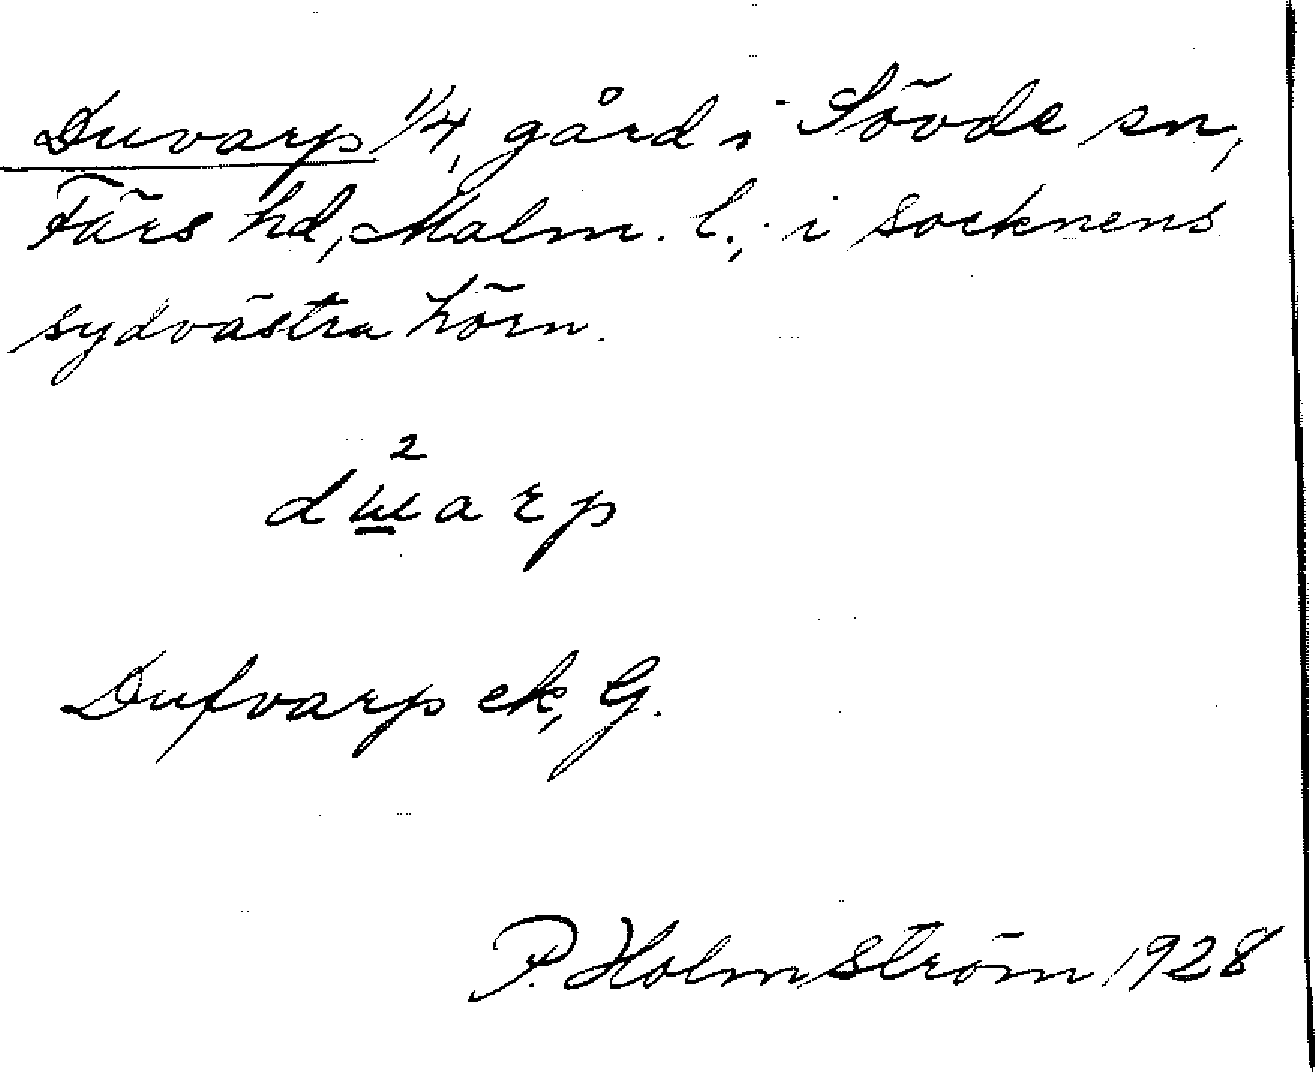 Duvarp 1/4, gård i Sövde sn,
Färs hd, Malm. l.; i socknens
sydvästra hörn.
2
Dufvarp ek, G.
P. Holmström 1928